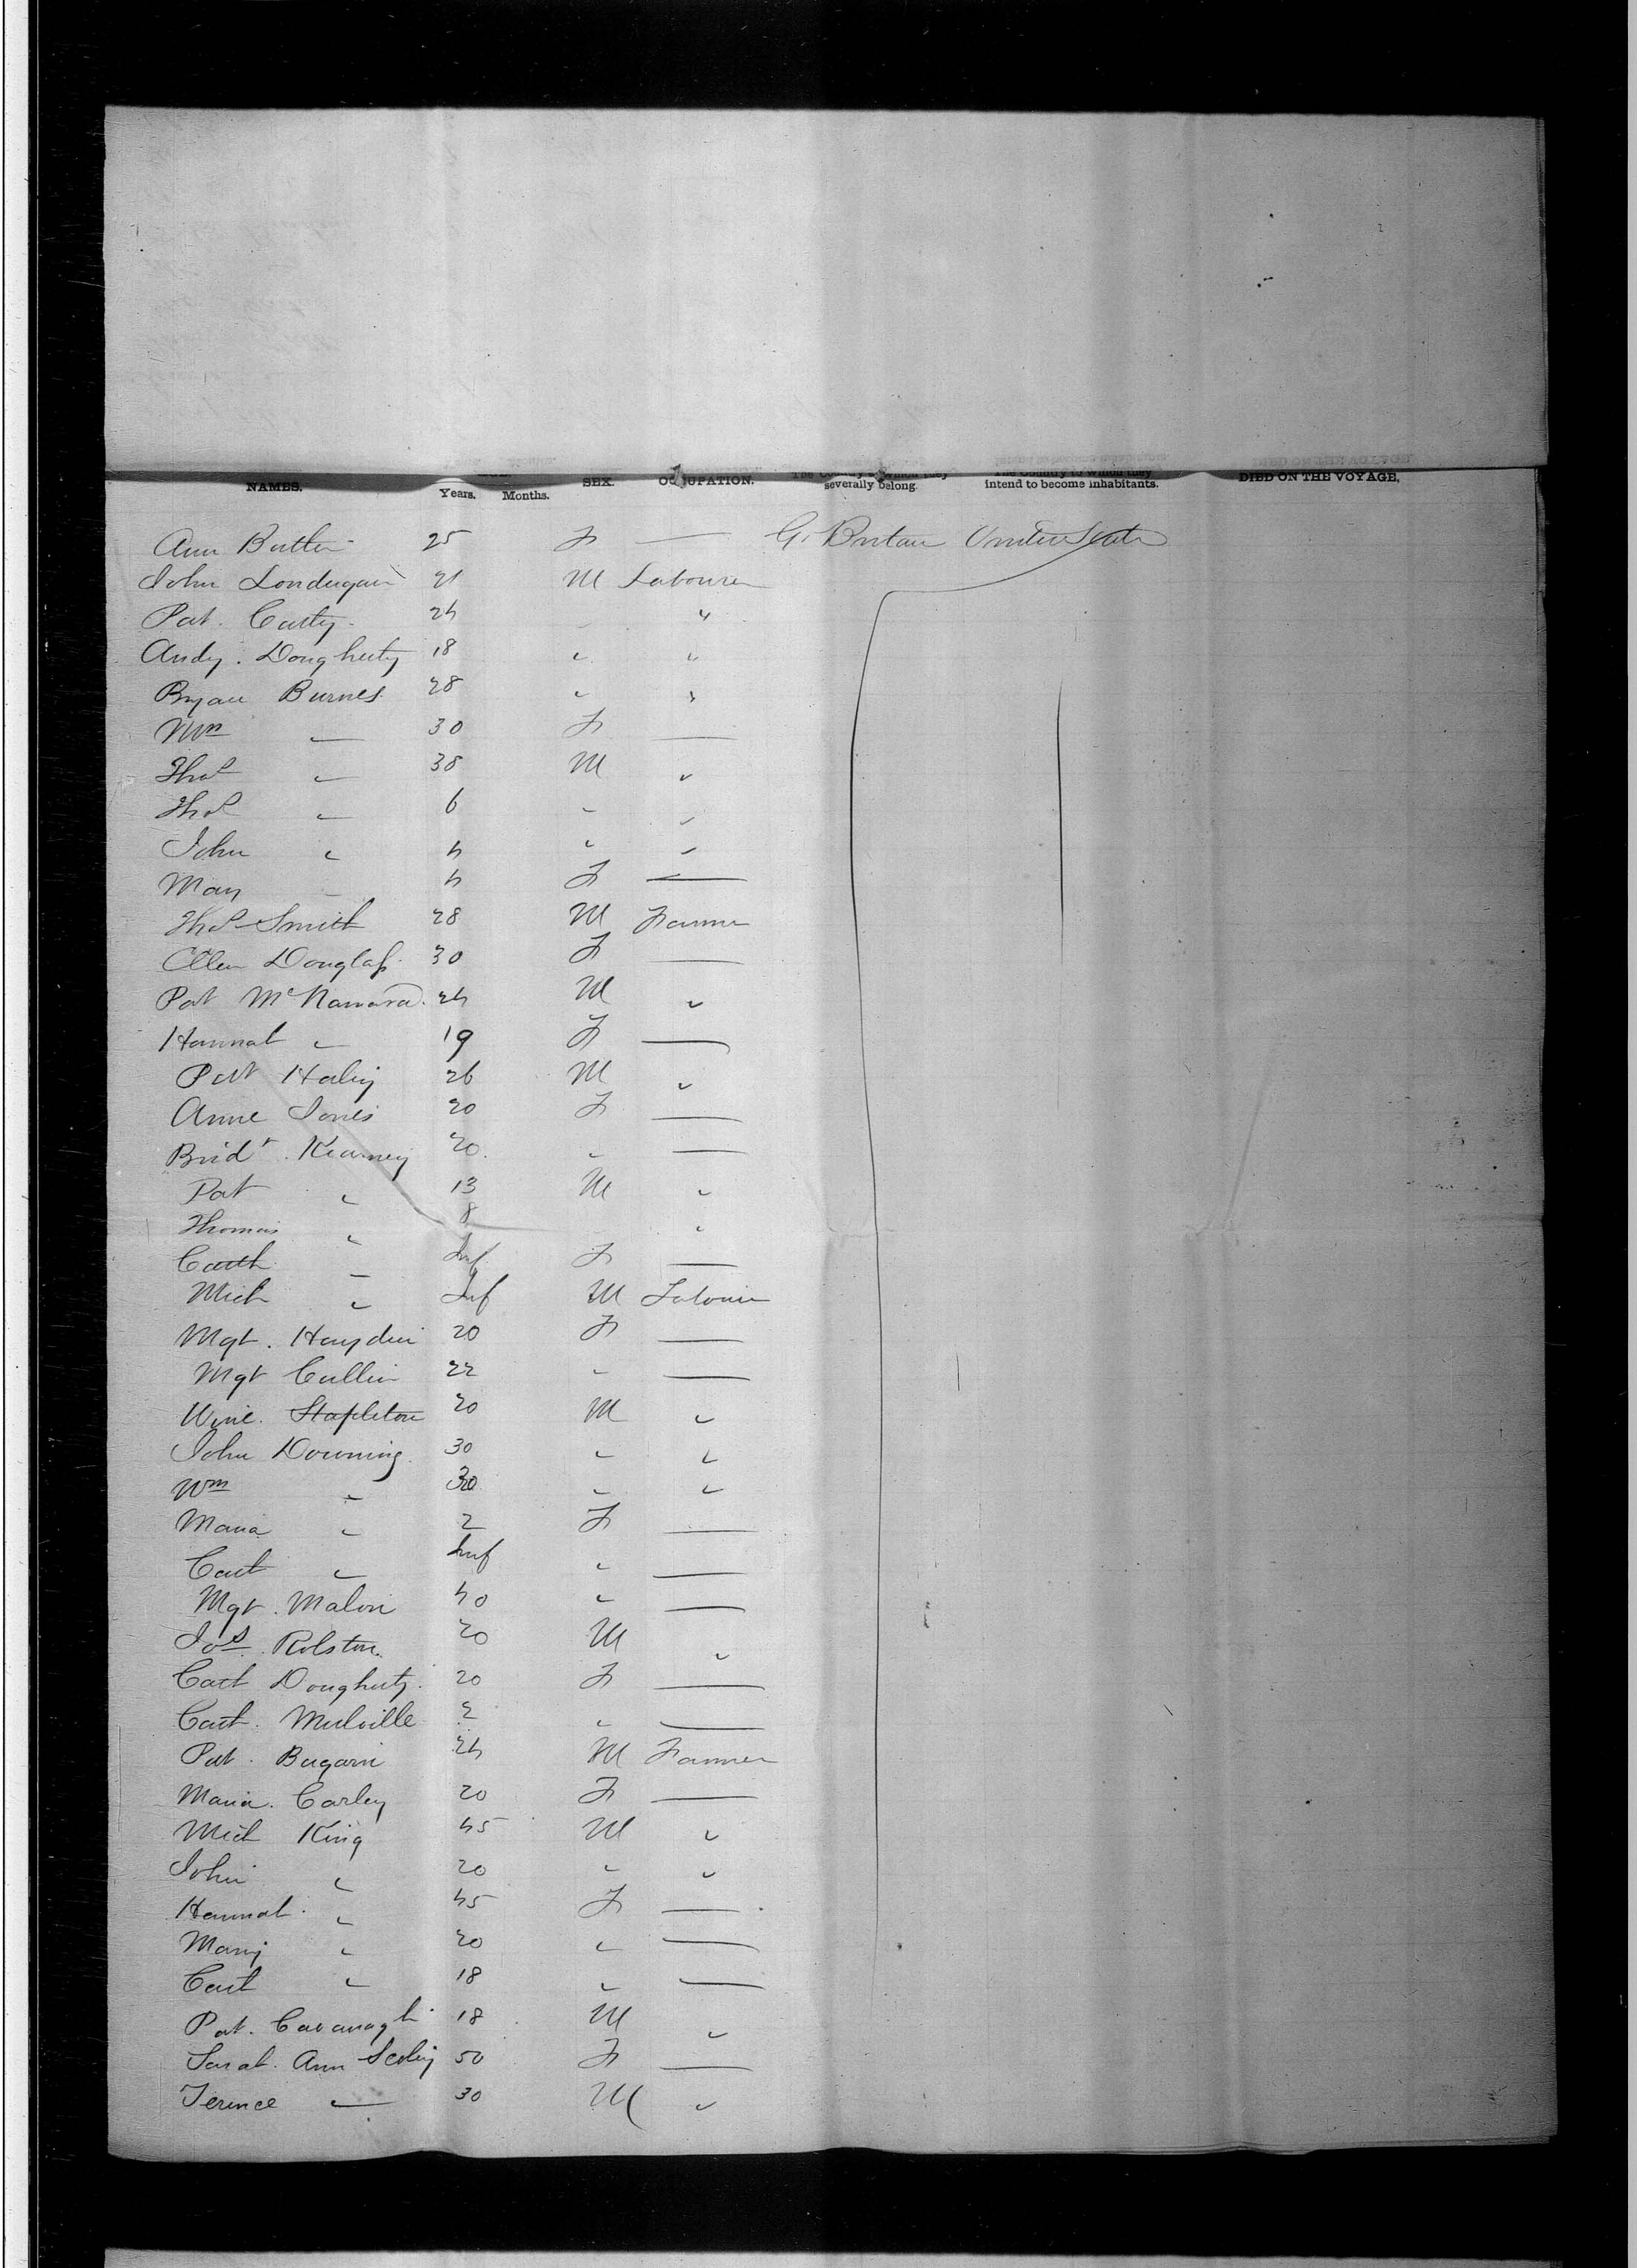 NAMES. Years. Months. SEX. OCCUPATION. The Country to which they severally belong. The Country to which they intend to become inhabitants. DIED ON THE VOYAGE.
Ann Butler 25 F — G. Britain United States
John Londugan 21 M Labourer
Pat. Carty 24 "
Andy. Dougherty 18 " "
Bryan Burnes 28 " "
Mrs — 30 F —
Thos " 38 M "
Thos " 6 " "
John " 4 " "
Mary " 4 F —
Thos Smith 28 M Farmer
Ellen Douglass 30 F —
Pat McNamara 24 M "
Hannah " 19 F —
Patt Haley 26 M "
Anne Jones 20 F —
Bridt. Kearney 20 " —
Pat " 13 M "
Thomas " 8 "
Cath " Inf F —
Mich " Inf M Labourer
Mgt. Hayden 20 F —
Mgt Cullin 22 " —
Wine. Stapleton 20 M "
John Downing 30 " "
Wm " 30 " "
Maria " 2 F —
Cath " Inf " —
Mgt. Malon 40 " —
Jos. Rolston 20 M "
Cath Dougherty 20 F —
Cath. Mulville 2 " —
Pat. 24 M Farmer
Maria. Carley 20 F —
Mich King 45 M "
John " 20 " "
Hannah " 45 F —
Mary " 20 " —
Cath " 18 " —
Pat. Cavanagh 18 M "
Sarah Ann 50 F —
Terence — 30 M "